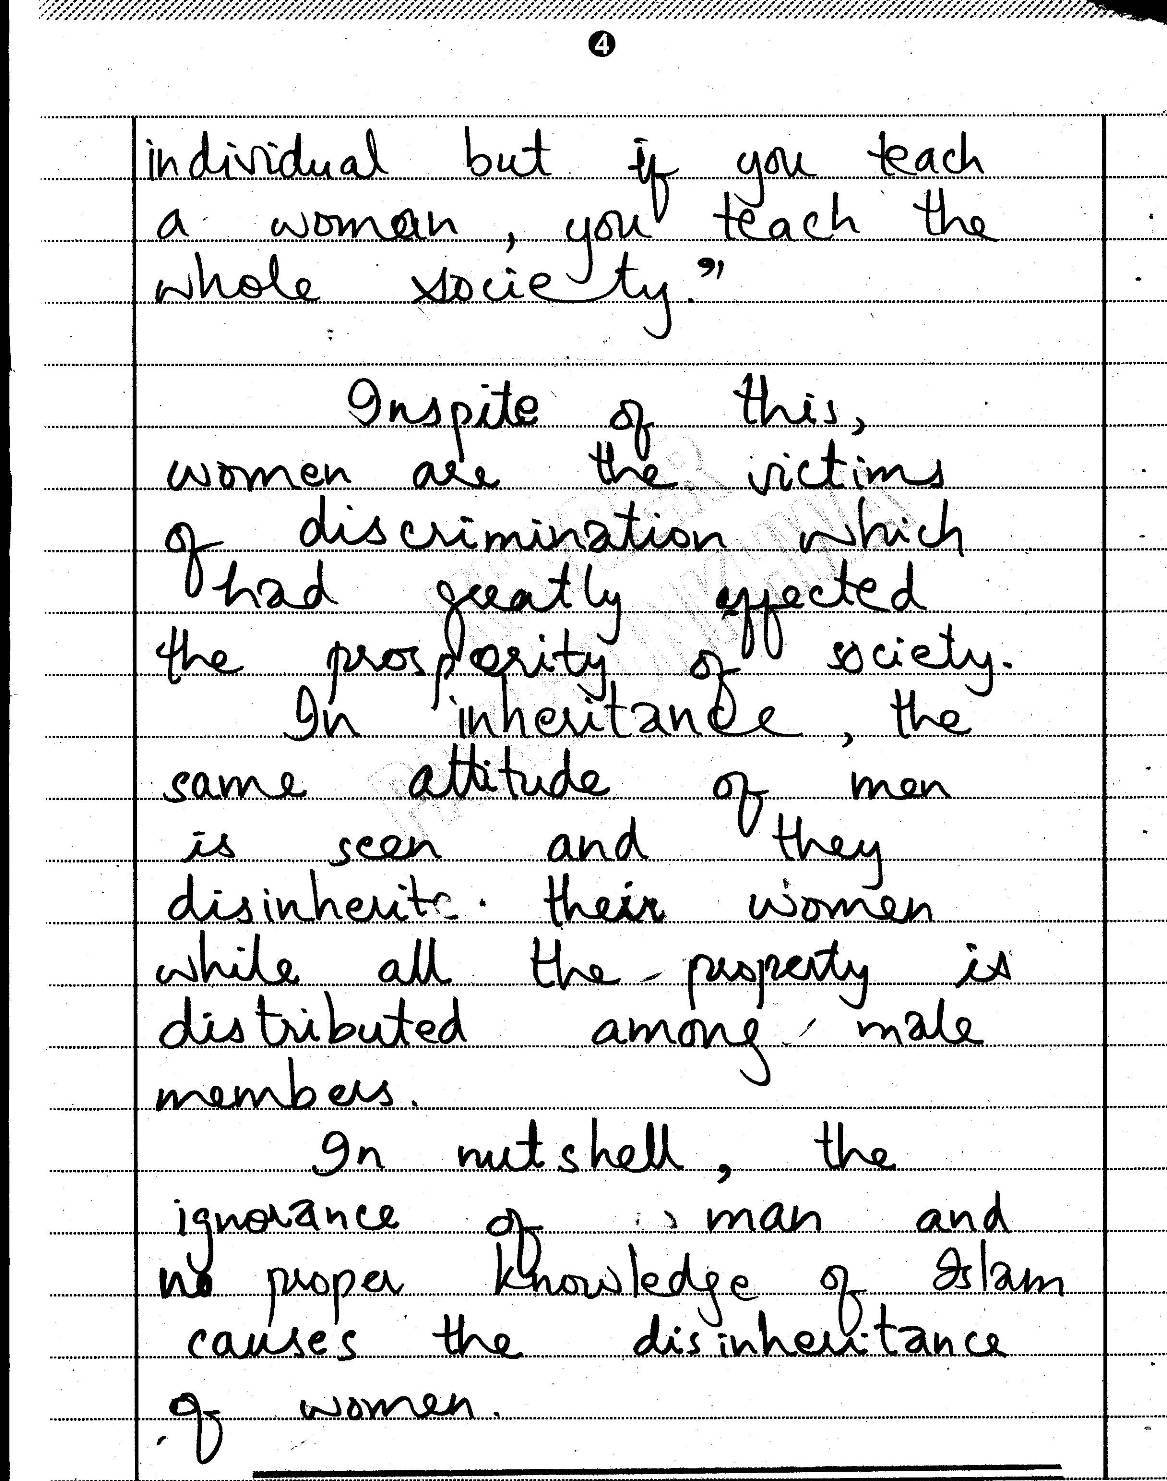 4
individual but if you teach
a woman, you teach the
whole society."
Inspite of this,
women are the victims
of discrimination which
had greatly affected
the prosperity of society.
In inheritance, the
same attitude of men
is seen and they
disinherite. their women
while all the property is
distributed among male
members.
In nutshell, the
ignorance of man and
no proper knowledge of Islam
causes the disinheritance
of women.